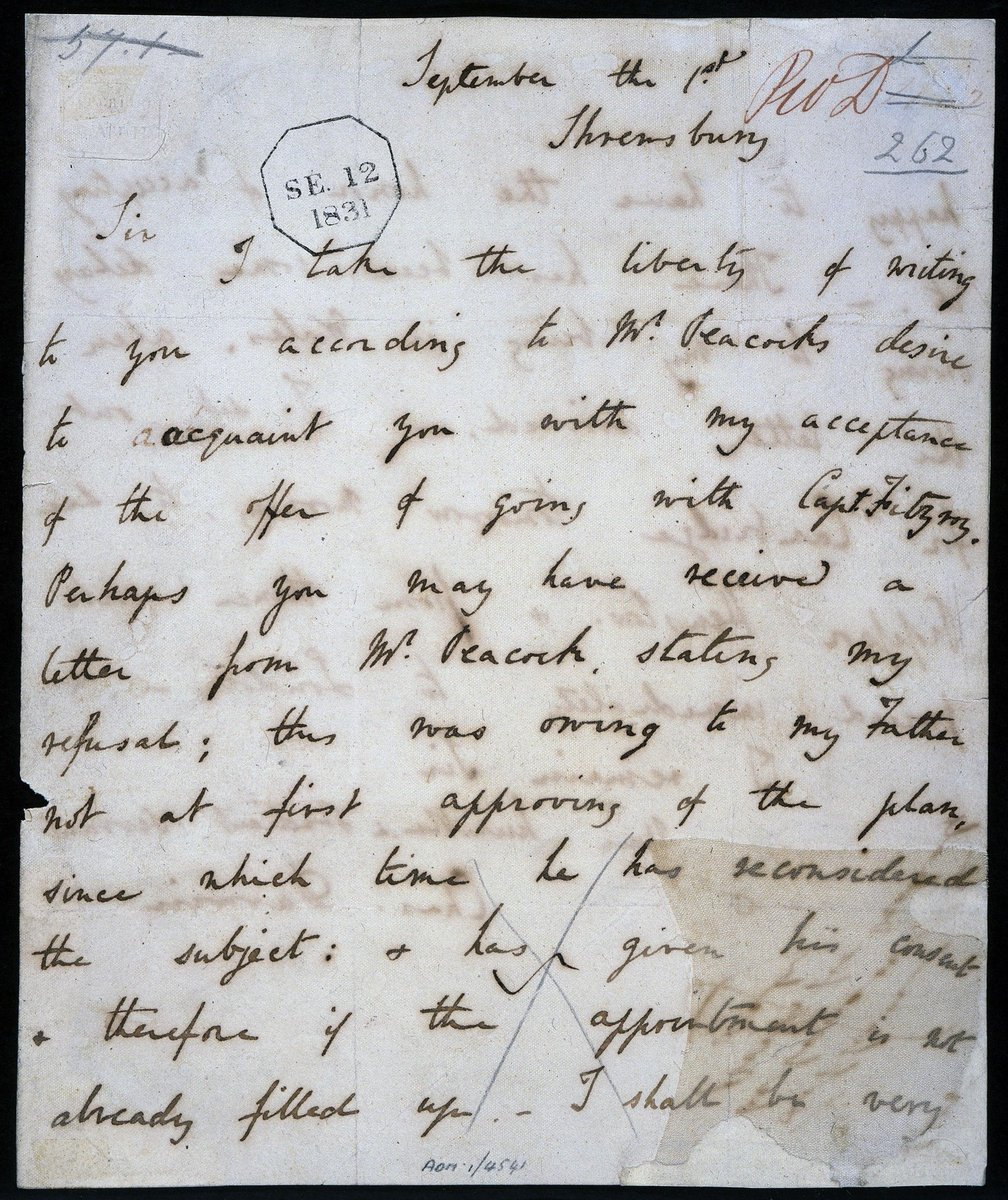 57.1
September the 1st
Pro D
1
2
Shrewsbury
262
SE. 12
1831
Sir
I take the liberty of writing
to you according to Mr. Peacocks desire
to aacquaint you with my acceptance
of the offer of going with Capt Fitzroy.
Perhaps you may have received a
letter from Mr. Peacock, stating my
refusal; this was owing to my Father
not at first approving of the plan,
since which time he has reconsidered
the subject: & has given his consent
& therefore if the appointment is not
already filled up – I shall be very
Adm. 1/4541